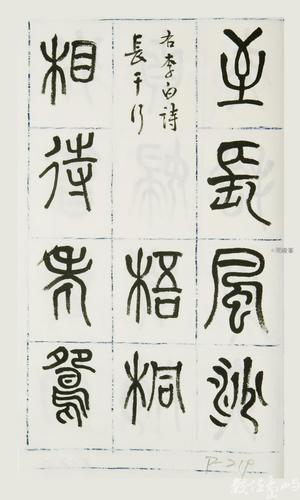 至長風沙
右李白詩
長干行
梧桐
相待老鴛
P-219